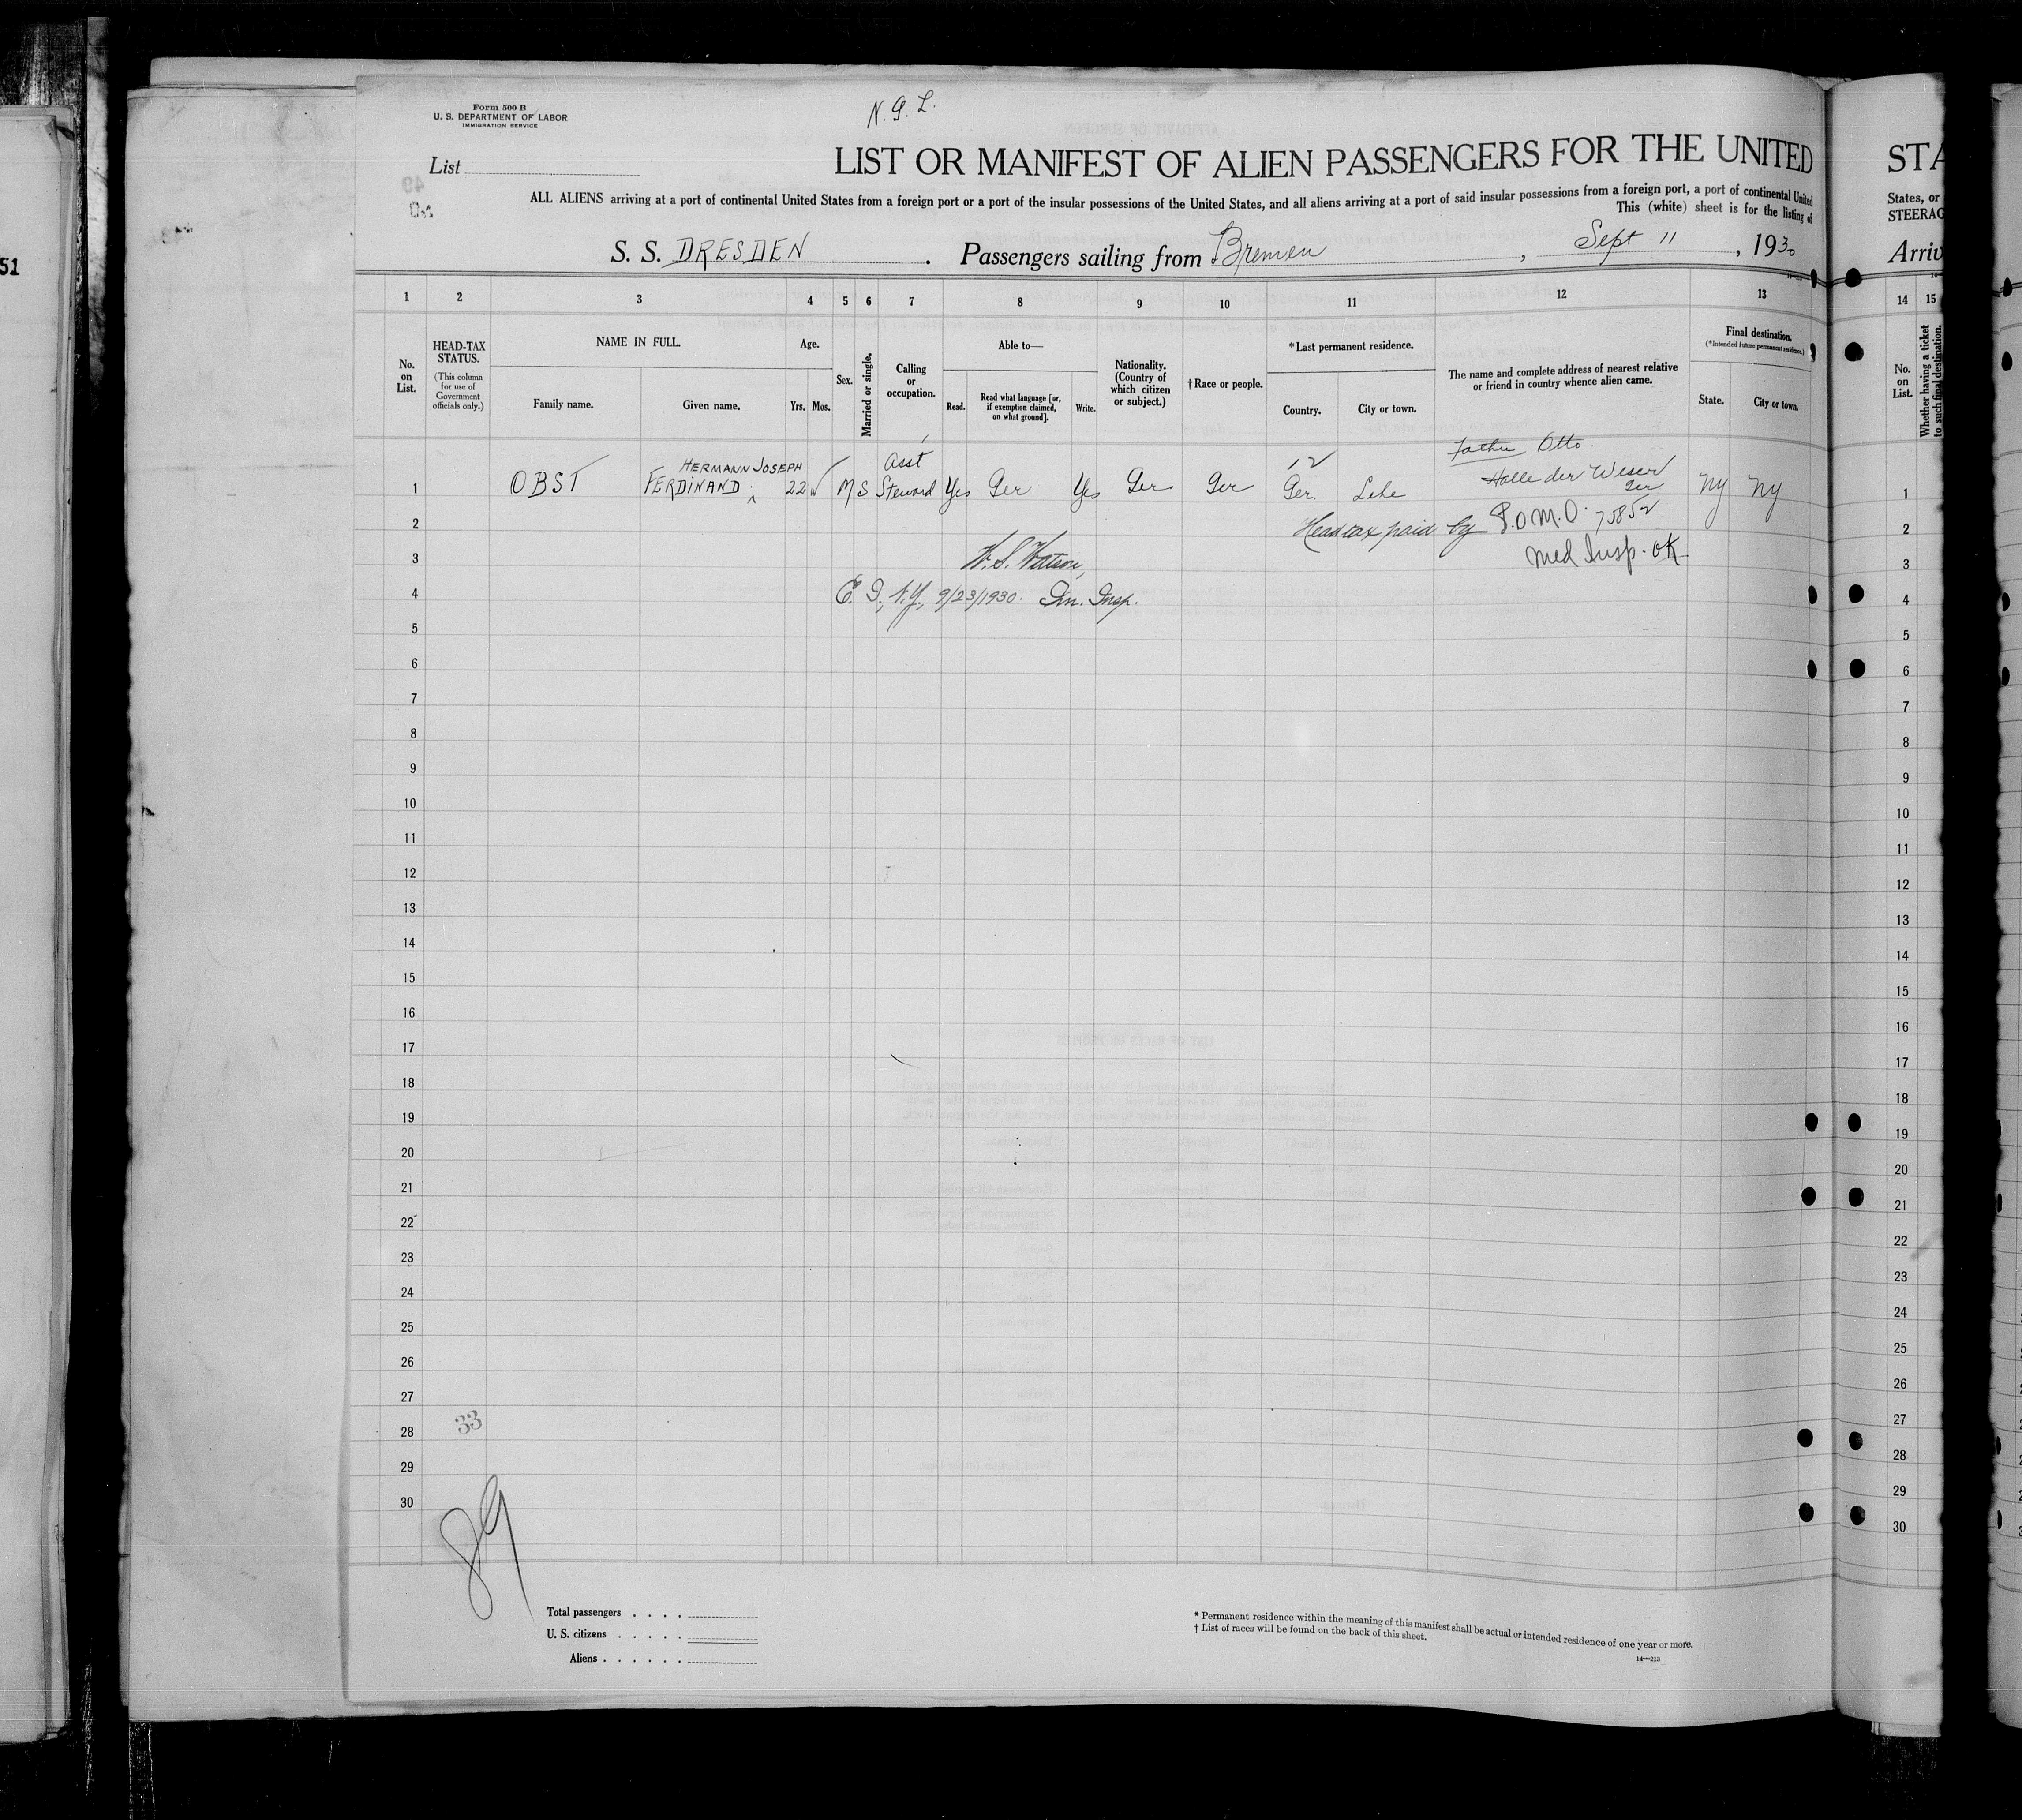 51
Form 500 B
U. S. DEPARTMENT OF LABOR
IMMIGRATION SERVICE
N. G. L.
List
LIST OR MANIFEST OF ALIEN PASSENGERS FOR THE UNITED
STA
ALL ALIENS arriving at a port of continental United States from a foreign port or a port of the insular possessions of the United States, and all aliens arriving at a port of said insular possessions from a foreign port, a port of continental United
States, or
This (white) sheet is for the listing of
STEERAG
S. S. DRESDEN . Passengers sailing from Bremen , Sept 11 , 1930
Arriv
1 2 3 4 5 6 7 8 9 10 11 12 13 14 15
No. on List.
HEAD-TAX STATUS.
(This column for use of Government officials only.)
NAME IN FULL.
Family name.
Given name.
Age.
Yrs. Mos.
Sex.
Married or single.
Calling or occupation.
Able to—
Read.
Read what language [or, if exemption claimed, on what ground].
Write.
Nationality. (Country of which citizen or subject.)
† Race or people.
* Last permanent residence.
Country.
City or town.
The name and complete address of nearest relative or friend in country whence alien came.
Final destination.
(*Intended future permanent residence.)
State.
City or town.
No. on List.
Whether having a ticket to such final destination.
HERMANN JOSEPH Asst Father Otto
1 OBST FERDINAND 22 M S Steward Yes Ger Yes Ger Ger Ger. Lehe Halle der Weser Ger NY NY 1
2 Head tax paid by P.O.M.O. 75852 2
3 W. S. Watson, Med Insp. OK 3
4 E. I., N.Y., 9/23/1930. Im. Insp. 4
5 5
6 6
7 7
8 8
9 9
10 10
11 11
12 12
13 13
14 14
15 15
16 16
17 17
18 18
19 19
20 20
21 21
22 22
23 23
24 24
25 25
26 26
27 27
33
28 28
29 29
30 30
89
Total passengers . . . .
U. S. citizens . . . . .
Aliens . . . . . .
* Permanent residence within the meaning of this manifest shall be actual or intended residence of one year or more.
† List of races will be found on the back of this sheet.
14—213